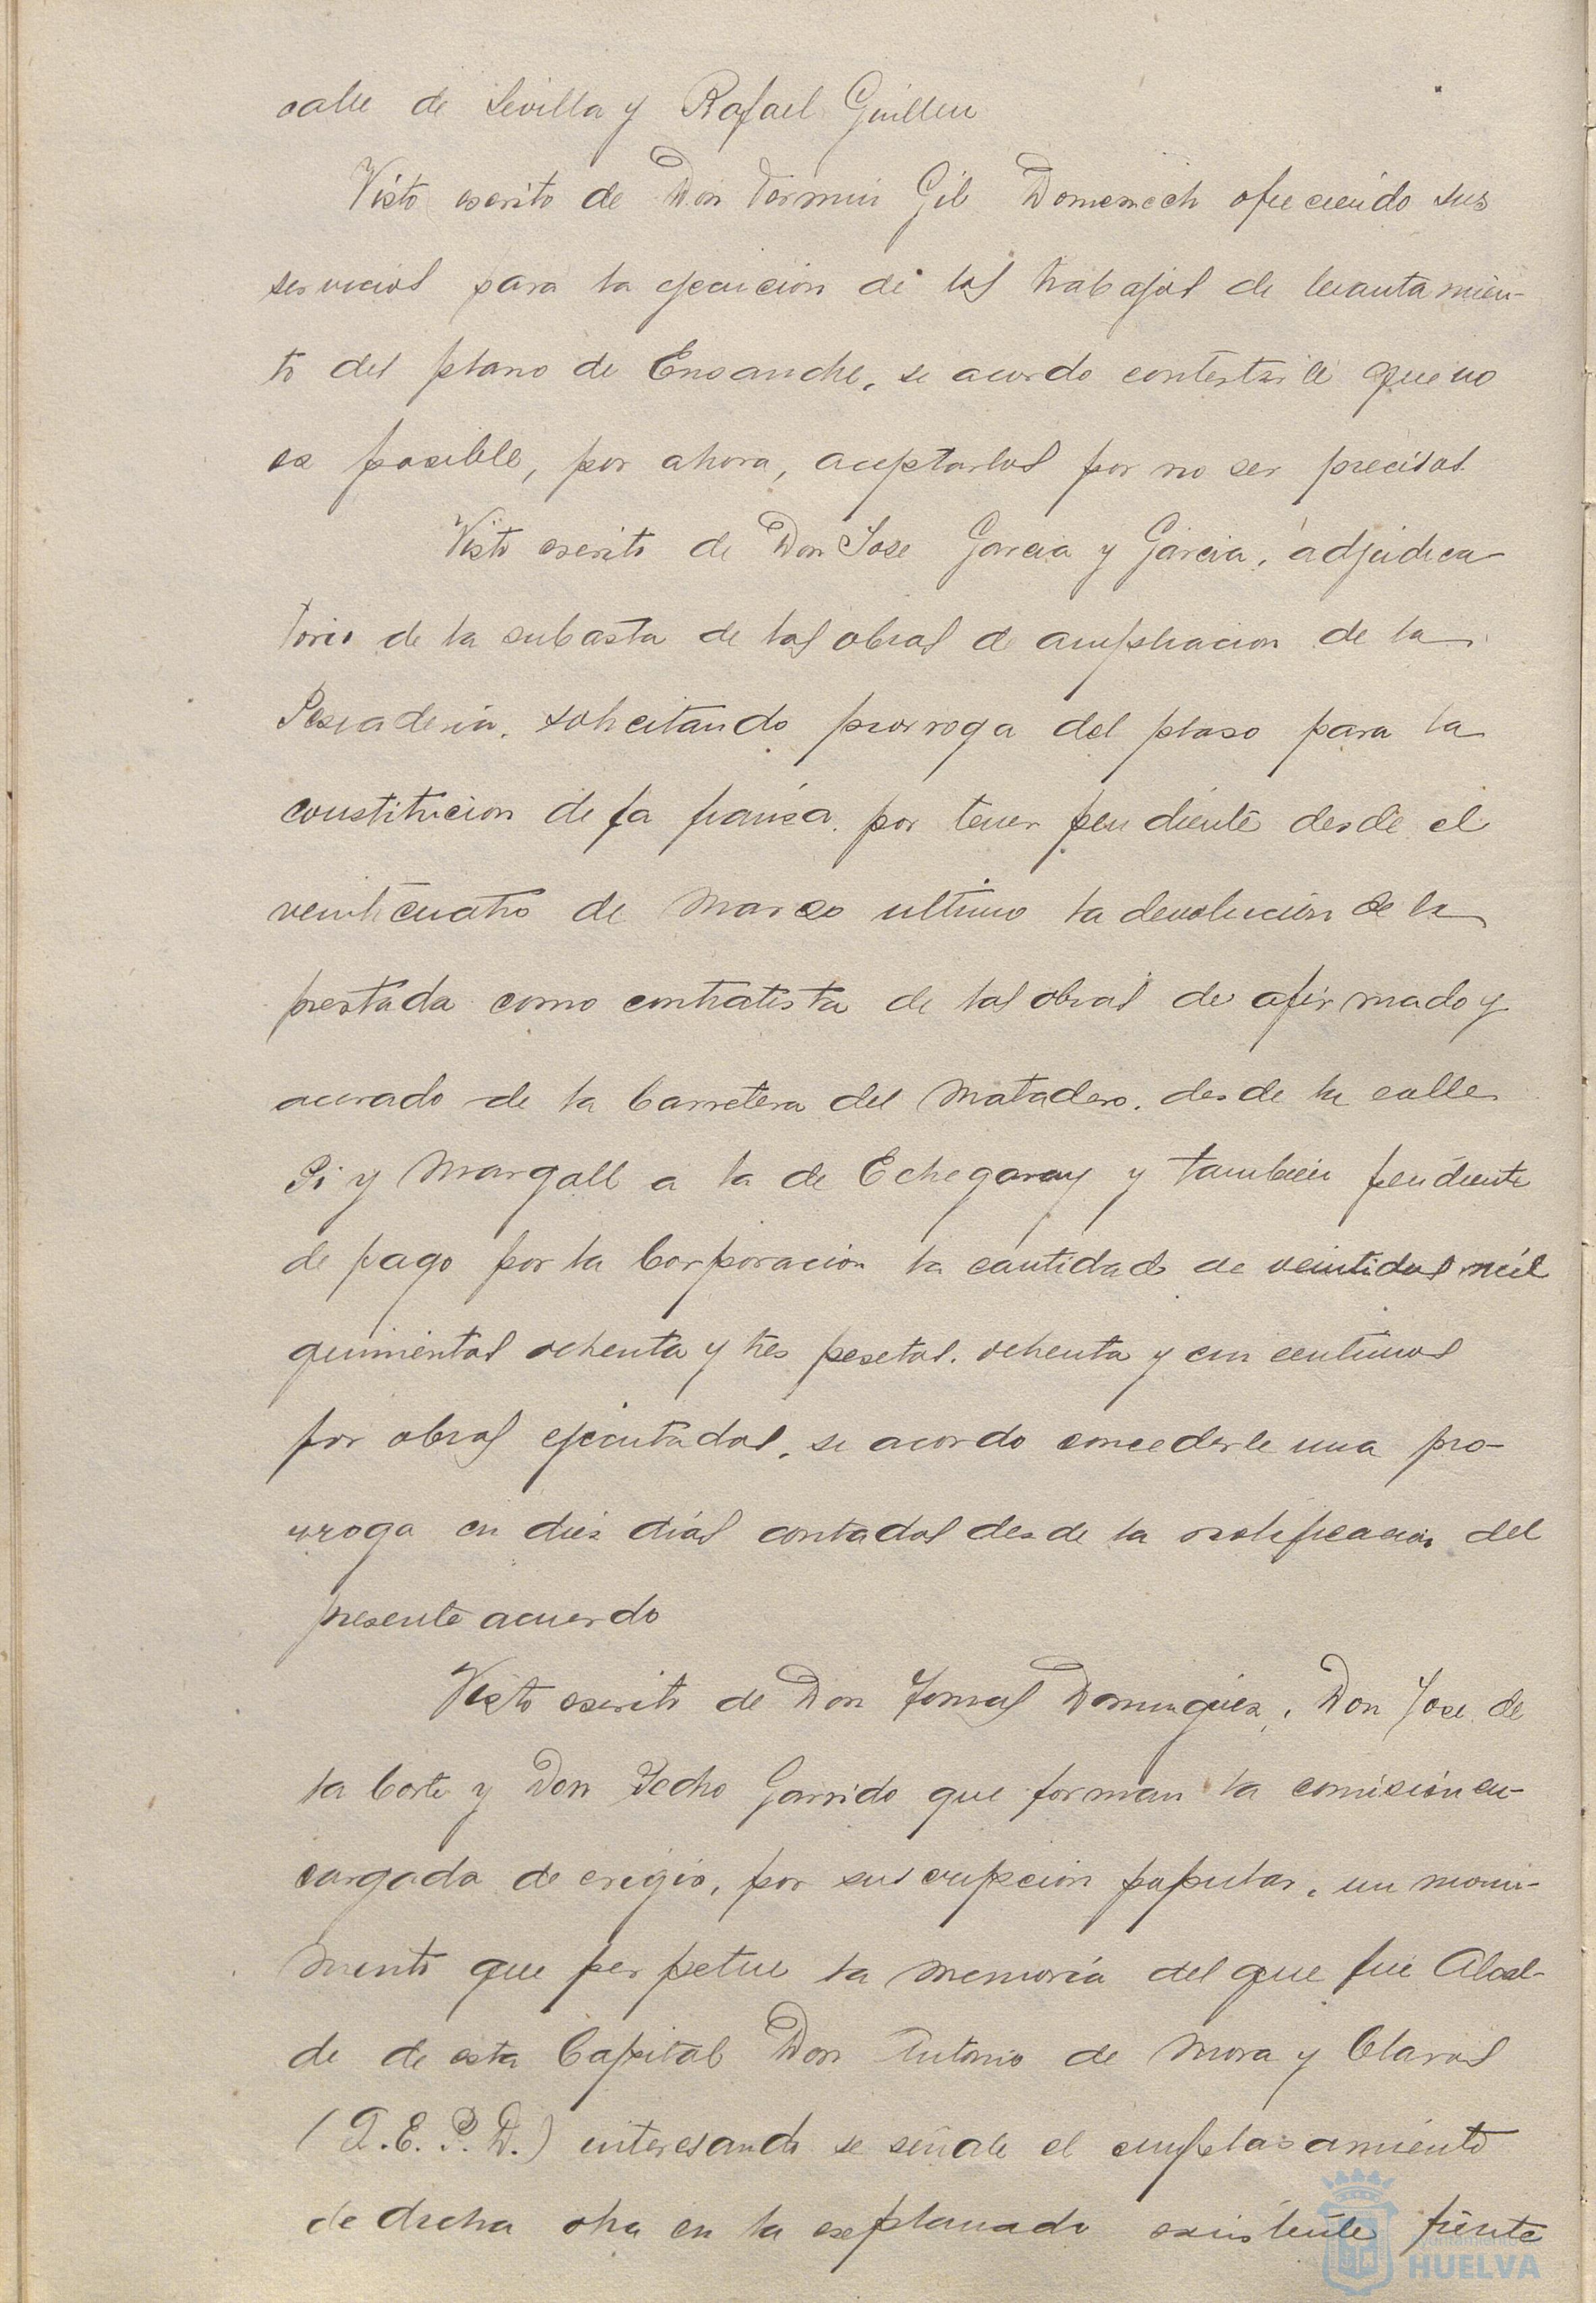 calle de Sevilla y Rafael Guillen
Visto escrito de Don Fermin Gil Domenech ofreciendo sus
servicios para la ejecucion de los trabajos de levantamien-
to del plano de Ensanche, se acordo contestarle que no
es posible, por ahora, aceptarlos por no ser precisos
Visto escrito de Don Jose Garcia y Garcia, adjudica-
torio de la subasta de las obras de ampliacion de la
Pescaderia, solicitando prorroga del plaso para la
constitucion de la fianza por tener pendiente desde el
veinticuatro de Marzo ultimo la devolución de la
prestada como contratista de las obras de afirmado y
acerado de la Carretera del Matadero, desde la calle
Pi y Margall a la de Echegaray y tambien pendiente
de pago por la Corporacion la cantidad de veintidos mil
quinientas ochenta y tres pesetas, ochenta y un centimos
por obras ejecutadas, se acordo concederle una pro-
rroga en diez días contados desde la notificacion del
presente acuerdo
Visto escrito de Don Tomas Dominguez, Don Jose de
la Corte y Don Pedro Garrido que forman la comisión en-
cargada de erigir, por suscripcion popular, un monu-
mento que perpetue la memoria del que fué Alcal-
de de esta Capital Don Antonio de Mora y Claros
(Q.E.P.D.) interesando se señale el emplasamiento
de dicha obra en la explanada existente frente
Ayuntamiento
HUELVA